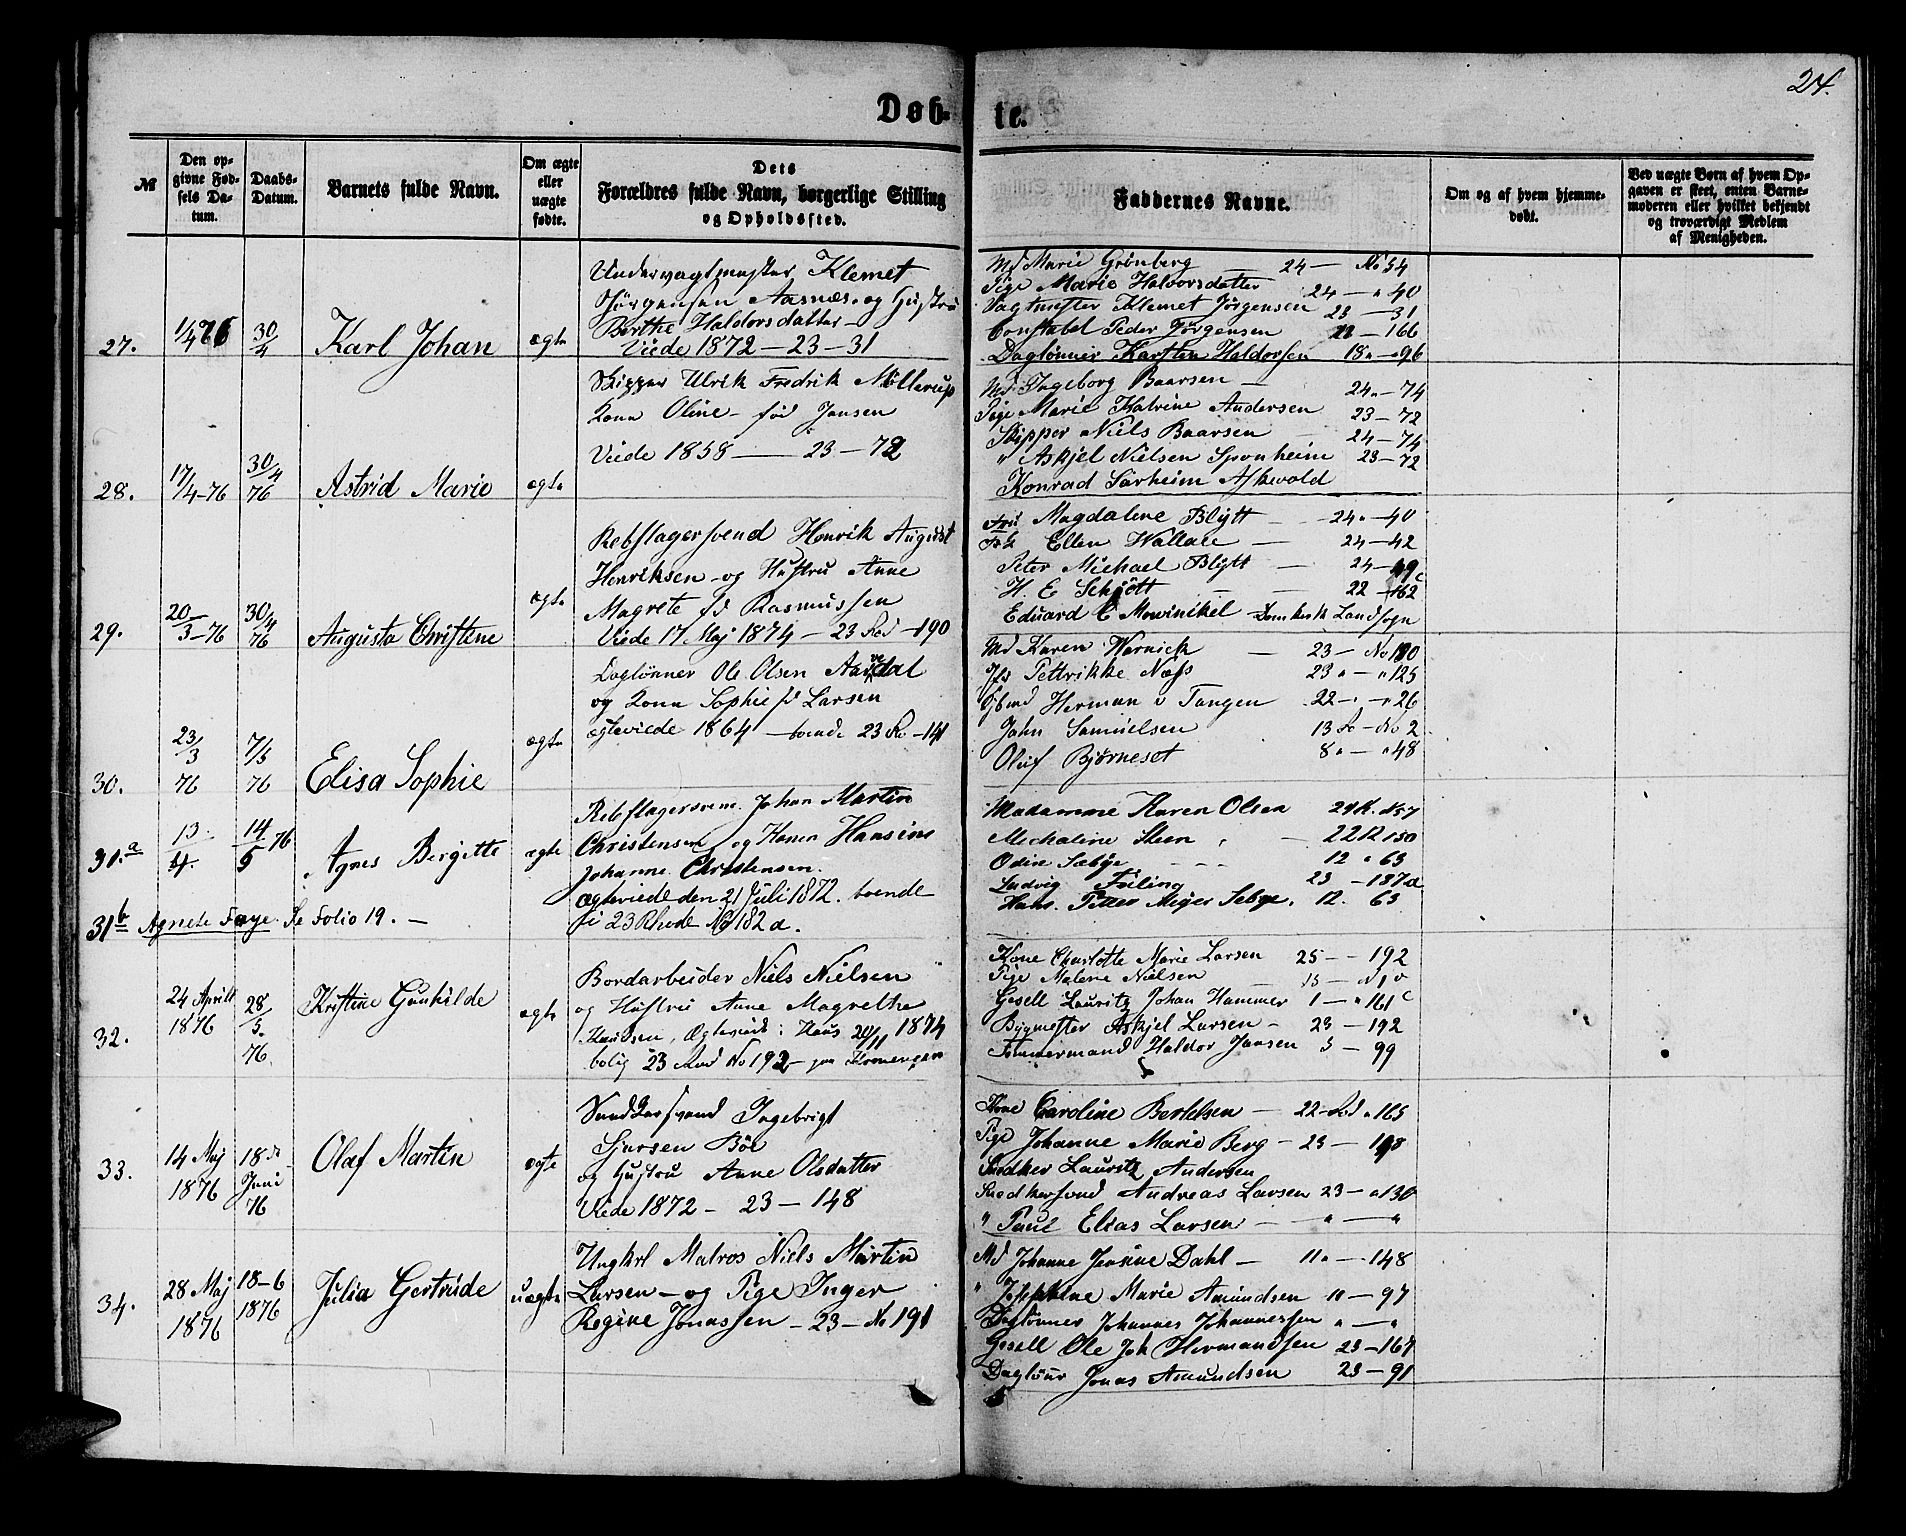 24.
Døb-
te.
№
Den op-
givne Fød-
sels Da-
tum.
Daabs-
Datum.
Barnets fulde Navn.
Om ægte
eller
uægte
fødte.
Dets
Forældres fulde Navn, borgerlige Stilling
og Opholdssted.
Faddernes Navne.
Om og af hvem hjemme-
døbt.
Ved uægte Børn af hvem Op-
gaven er skeet, enten Barne-
moderen eller hvilket bekjendt
og troværdigt Medlem
af Menigheden.
27.
1/4 76
30/4
Karl Johan
ægte
Undervagtmester Klemet
Jørgensen Aasnæs og Hustru
Berthe Haldorsdatter
Viede 1872 — 23 — 31
Md Marie Grønberg 24 — No 34
Pige Marie Halvorsdatter 24 — " 40
Vagtmester Klemet Jørgensen 23 — 31
Constabel Peder Jørgensen 22 — 166
Daglønner Karsten Haldorsen 18 " — " 96
28.
17/4-76
30/4
76
Astrid Marie
ægte
Skipper Ulrik Fredrik Möllerup
Kona Oline - fød Jansen
Viede 1858 — 23 — 72
Md Ingeborg Baarsen — 24 " — 74
Pige Marie Katrine Andersen 23 — 72
Skipper Niels Baarsen 24 — 74
" Askjel Nielsen Sponheim 23 — 72
Konrad Sørheim Askevold
29.
20/3-76
30/4
76
Augusta Christene
ægte
Rebslagersvend Henrik August
Henriksen og Hustru Anne
Magrete fd Rasmussen
Viede 17. Maj 1874 — 23 Rod — 190
Fru Magdalene Blytt — 24 " — 40
Frk Ellen Wallace — 24 — 42
Peter Michael Blytt — 24 — 49
H. E Schjött — 22 — 162 c
Eduard C Mowinkel — Domkirk Landsogn
30.
23/3
76
7/5
76
Elisa Sophie
ægte
Daglønner Ole Olsen Aardal
og Kona Sophie fd Larsen
ægteviede 1864 — boende 23 Ro — 141
Md Karen Warnick — 23 — No 190
Jfr Pettrikke Næss 23 " — " 125
Herman v Tangen — 22 — " — " 26
John Samuelsen 13 Ro — No 2
Oluf Björneset 8 " — " 48
31.a
13/4.
14/5 76
Agnes Bergitte
ægte
Rebslagersvend. Johan Martin
Christensen og Konen Hansine
Johanne Christensen.
ægteviede den 21 Juli 1872. boende
i 23 Rhode No 182 a.
Madamme Karen Olsen 24 R. N57
Mechaline Steen 22 R 150
Odin Sæbye 12 " 63
Ludvig Friling 23 — 187 a
Hans. Petter Meyer Sebye. 12. 63
31b Agnete Faye. Se Folio 19. —
32.
24 April
1876
28/5.
76.
Kristine Gunhilde
ægte
Bordarbeider Niels Nielsen
og Hustru Anne Magrethe
Knudsen, Ægteviede i Haus 20/11 1874
bolig 23 Rod No 192 — paa
Kone Charlotte Marie Larsen 25 — 192
Pige Malene Nielsen
Gesell Lauritz Johan Hammer 1 — " 161 c
Bygmester Askjel Larsen — 23 — 192
Tømmermand Haldor Jansen 3 — 99
33.
14 Maj
1876
18de
Juni
76
Olaf Martin
ægte
Snedkersvend Ingebrigt
Sjursen Böe
og Hustru Anne Olsdatter
Viede 1872 — 23 — 148
Kone Caroline Bertelsen — 22 — Rod " 165
Pige Johanne Marie Berg — 23 — 198
Snedker Lauritz Andersen
Snedkersvend Andreas Larsen 23 — " 130
" Paul Elias Larsen — " — "
34.
28 Maj
1876
18-6
1876
Julia Gertrude
uægte
Ungkrl Matros Niels Martin
Larsen — og Pige Inger
Regine Jonassen — 23 — No 191
Md Johanne Jensine Dahl — 11 " — 148
" Josephine Marie Amundsen 11 — 97
Dagløner Johannes Johannessen " — "
Gesell Ole Joh Hermandsen 23 — 167
Dagløner Jonas Amundsen 23 — 91